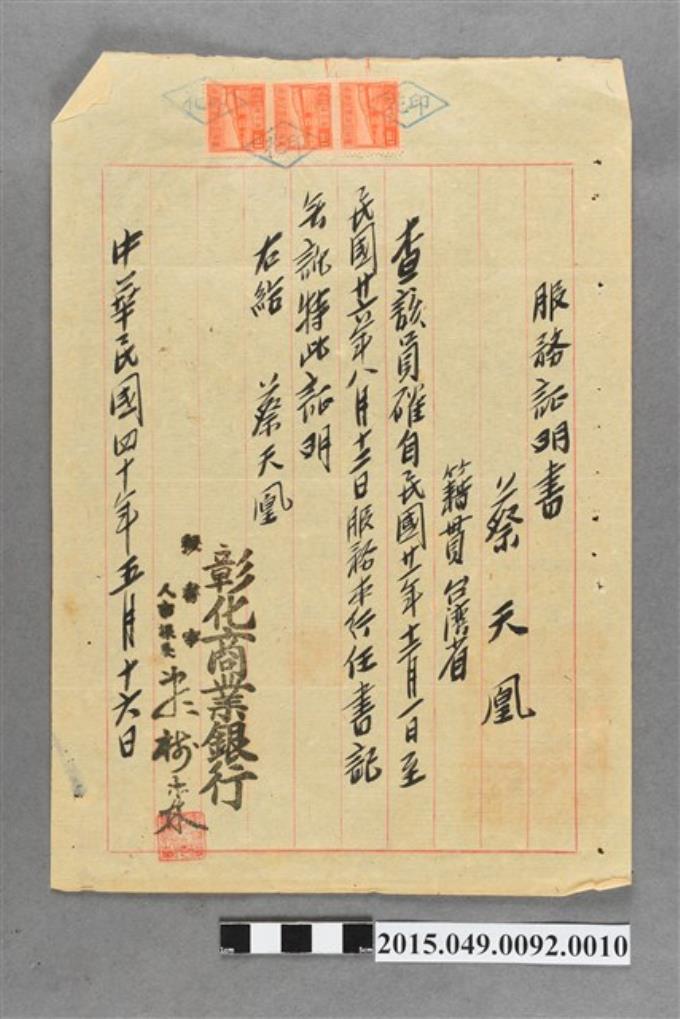 服務証明書
蔡天凰
籍貫台灣省
查該員確自民國廿一年十二月一日至
民國廿六年八月十二日服務本行任書記
無訛特此証明
右給 蔡天凰
彰化商業銀行
秘書室
人事課長
中華民國四十年五月十六日
印花
2015.049.0092.0010